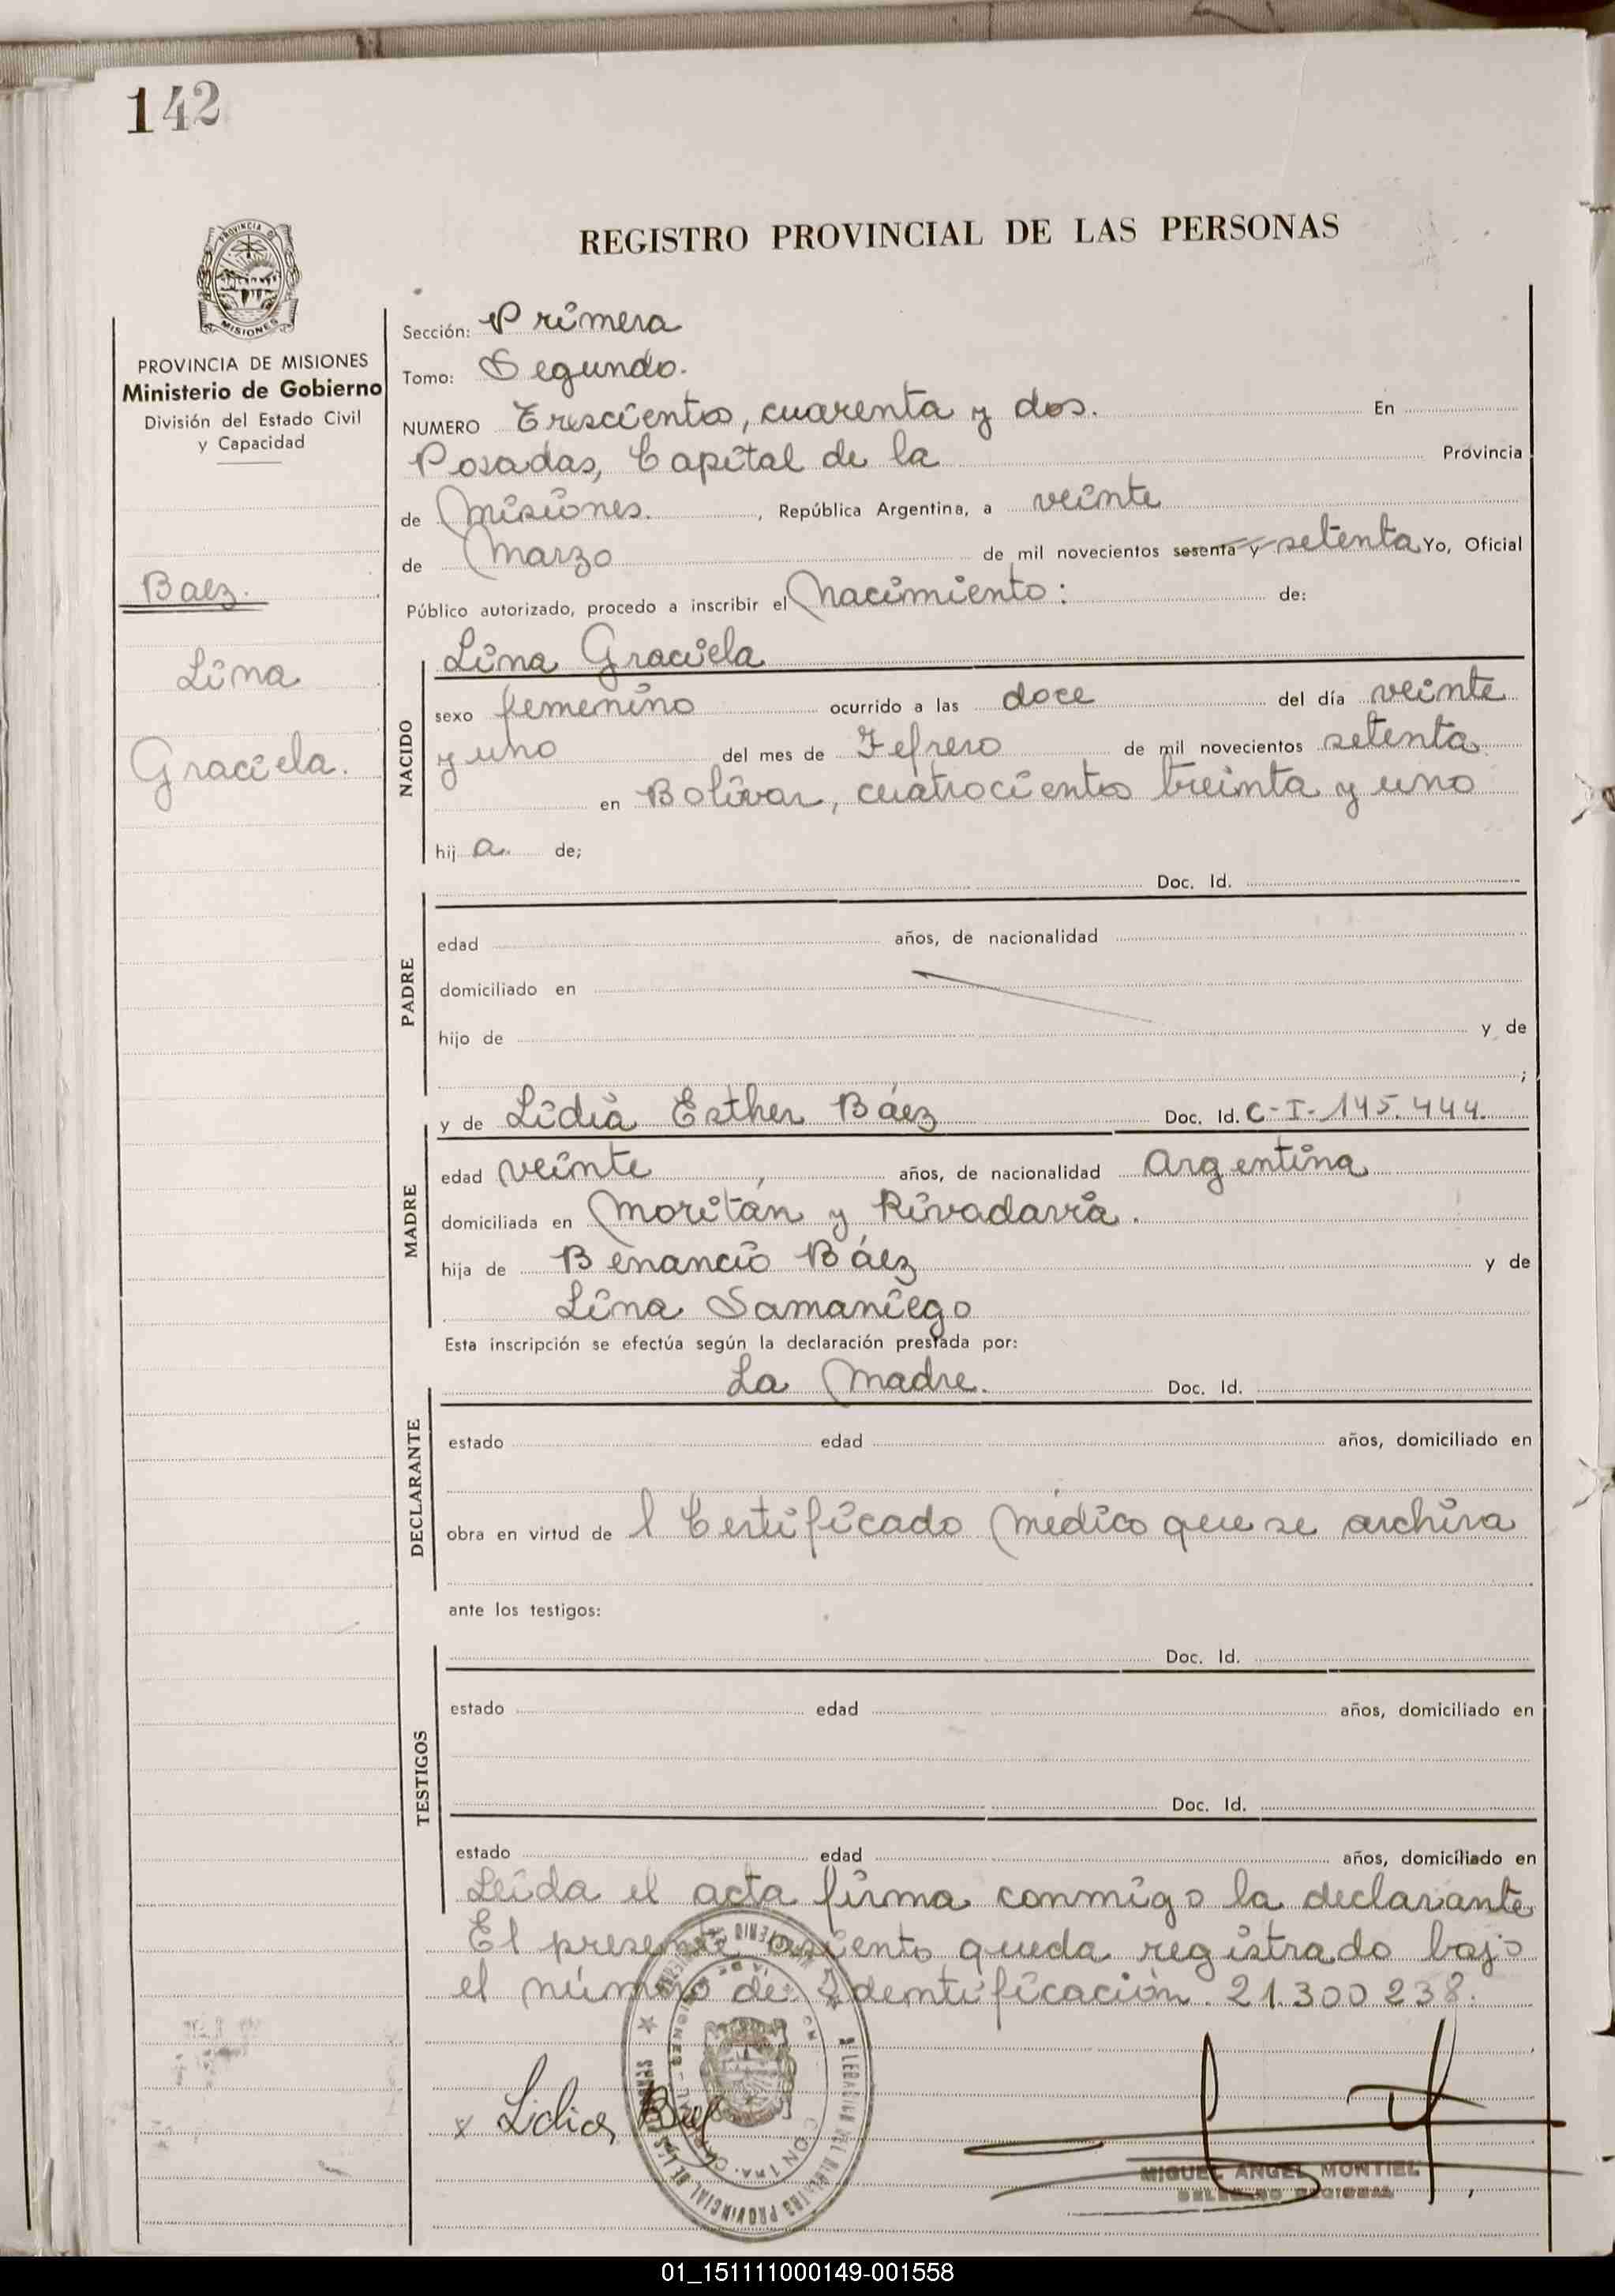 142
REGISTRO PROVINCIAL DE LAS PERSONAS
PROVINCIA DE MISIONES
Ministerio de Gobierno
División del Estado Civil
y Capacidad
Baez.
Lina
Graciela.
Sección: Primera
Tomo: Segundo.
NUMERO Trescientos, cuarenta y dos. En
Posadas, Capital de la Provincia
de Misiones. , República Argentina, a veinte
de Marzo de mil novecientos sesenta y setenta Yo, Oficial
Público autorizado, procedo a inscribir el Nacimiento: de:
NACIDO
Lina Graciela
sexo femenino ocurrido a las doce del día veinte
y uno del mes de Febrero de mil novecientos setenta
en Bolívar, cuatrocientos treinta y uno
hij a. de;
PADRE
Doc. Id.
edad años, de nacionalidad
domiciliado en
hijo de y de
;
MADRE
y de Lidia Esther Báez Doc. Id. C-I-145.444.
edad veinte , años, de nacionalidad Argentina
domiciliada en Moritán y Rivadavia.
hija de Benancio Báez y de
Lina Samaniego
Esta inscripción se efectúa según la declaración prestada por:
DECLARANTE
La Madre. Doc. Id.
estado edad años, domiciliado en
obra en virtud de l Certificado Médico que se archiva
ante los testigos:
TESTIGOS
Doc. Id.
estado edad años, domiciliado en
Doc. Id.
estado edad años, domiciliado en
Leída el acta firma conmigo la declarante
El presente asiento queda registrado bajo
el número de Identificación 21.300238.
x Lidia Báez
MIGUEL ANGEL MONTIEL
DELEGADO REGIONAL
01_151111000149-001558